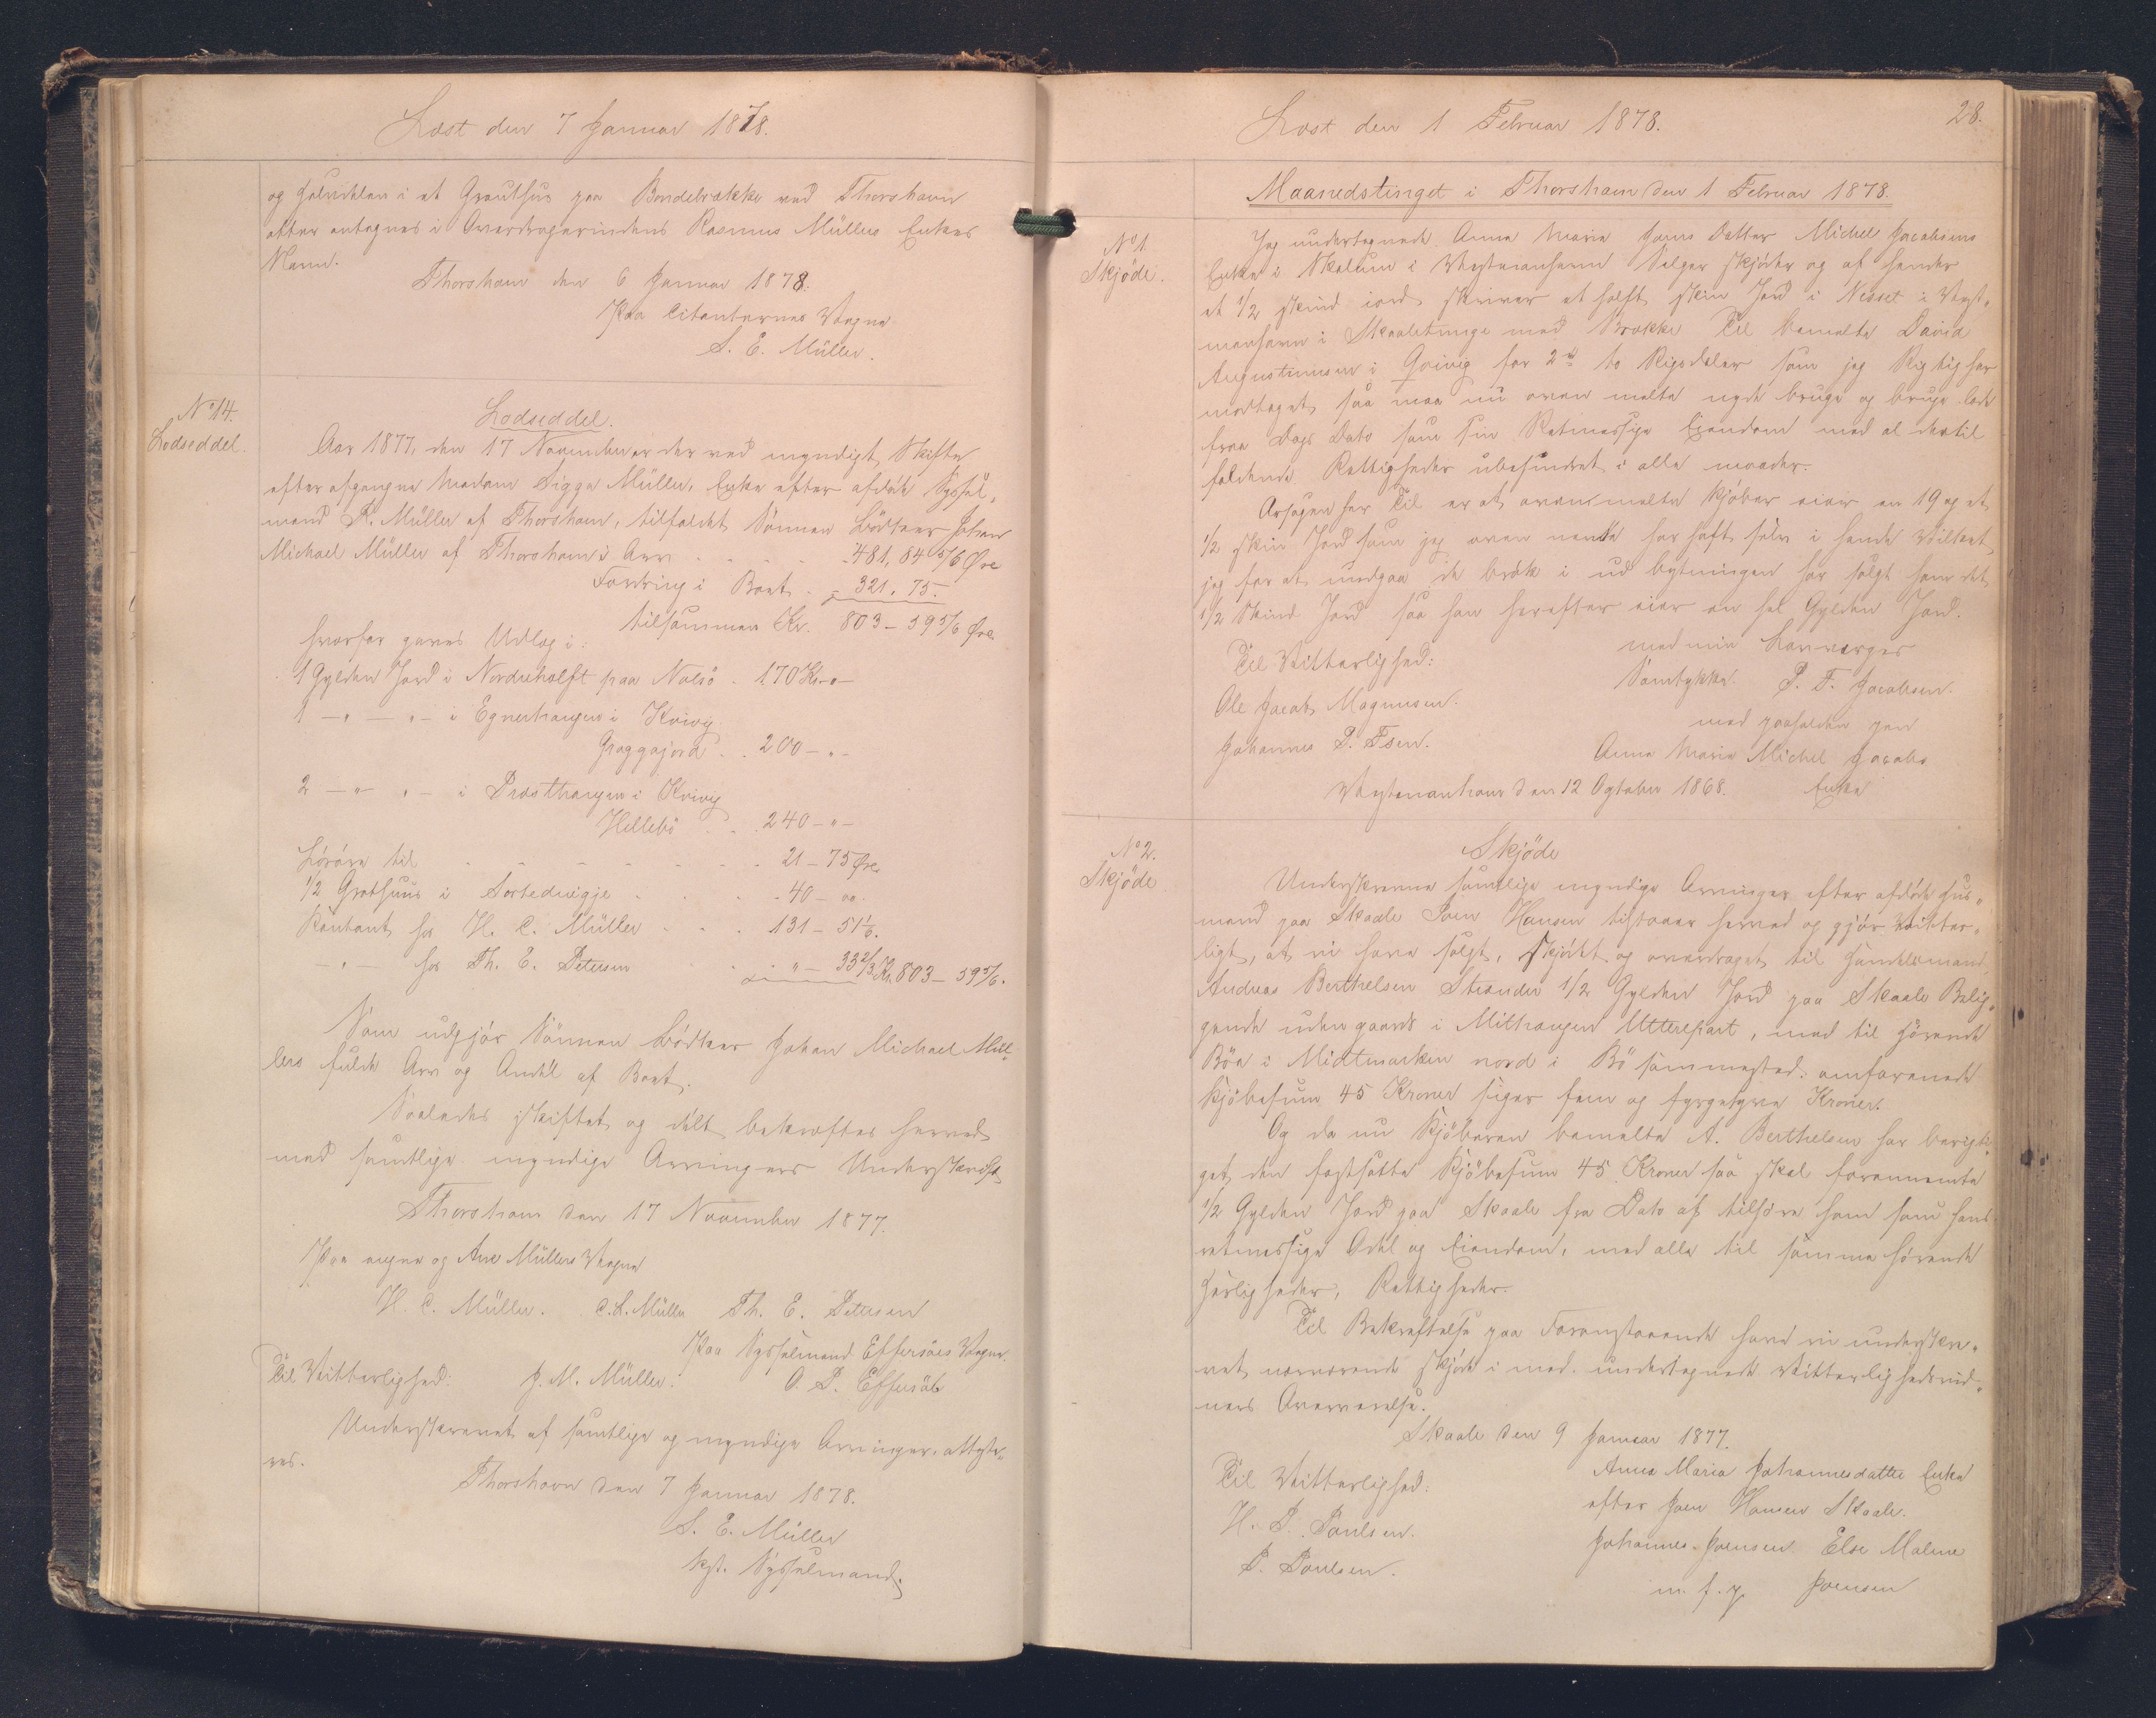 Læst den 7 Januar 1878.
og Halvdelen i et Grauthus paa Bondebrække ved Thorshavn
atter antegnes i Overdragerindens Rasmus Müllers Enkes
Navn.
Thorshavn den 6 Januar 1878.
Paa Citanternes Vegne
S. E. Müller.
No 14.
Lodseddel.
Lodseddel.
Aar 1877, den 17 November er der ved myndigt Skifte
efter afgangne Madam Sigga Müller, Enke efter afdøde Syssel„
mand R. Müller af Thorshavn, tilfaldet Sønnen Bødker Johan
Michael Müller af Thorshavn i Arv - - - 481, 84 5/6 Øre
Fordring i Boet - 321. 75.
tilsammen Kr. 803 – 59 5/6 Øre
hvorfor gives Udlæg i:
1 Gylden Jord i Nordrehalft paa Nolsö - 170 Kr - „ -
1 - „ - „ - i Egnerhaugen i Kvivig
Graggajord . . 200 - „ -
2 - „ - „ - i Præsthaugen i Kvivig
Hellebö . . 240 - „ -
Löröre til - - - - - - 21 - 75 Øre
1/2 Grothuus i Sorteduigje - - - 40 - oo.
Contant hos H. C. Müller - - - 131 - 51 1/6.
- „ - hos Th. E. Petersen - „ - 33 2/3 Kr. 803 - 59 5/6.
Som udgjør Sønnen Bødker Johan Michael Mül„
lers fulde Arv og Andel af Boet.
Saaledes skiftet og delt bekræftes herved
med samtlige myndige Arvingers Underskrift
Thorshavn den 17 November 1877.
Paa egne og Ane Müllers Vegne
H. C. Müller. C. L. Müller Th. E. Petersen
Paa Sysselmand Effersöes Vegne
Til Vitterlighed: J. M. Müller. O. P. Effersöe
Underskrevet af samtlige og myndige Arvinger, atteste„
res.
Thorshavn den 7 Januar 1878.
S. E. Müller
kst. Sysselmand.
Læst den 1 Februar 1878.
28.
Maanedstinget i Thorshavn den 1 Februar 1878.
No 1.
Skjöde.
Jeg undertegnede Anna Maria Joens Datter Michel Jacobsens
Enke i Vestmanhavn Selger skjöder og af hender
et 1/2 skind iord skriver et halft skin Jord i Nesset i Vest„
manhavn i med Brække Til bemelte David
Augustinusen i for 2 rd to Rigsdaler som jeg Rigtig har
modtaget saa maa nu oven melte nyde bruge og bruge lade
fraa Dags Dato som sin Retmessige Eiendom med al dertil
faldende Rettigheder ubehindret i alle maader.
Arsagen her Til er at ovenmelte kjöber eier en 19 og et
1/2 skin Jord som jeg oven nente har haft selv i hende Vilket
jeg for at undgaa de bröek i ud bytningen har solgt ham det
1/2 Skind Jord saa han herefter eier en hel Gylden Jord.
Til Vitterlighed:
med min Lavverges
Samtykke P. F. Jacobsen.
Ole Jacob Magnusen.
med paaholden pen
Johannes P. Isen.
Anna Maria Michel Jacobs
Vestmanhavn den 12 Ogtober 1868. Enke
No 2.
Skjöde
Skjöde
Underskrevne samtlige myndige Arvinger efter afdøde Huus„
mand paa Skaale Joen Hansen tilstaaer herved og gjör vitter„
ligt, at vi have solgt, skjödet og overdraget til Handelsmand
Andreas Berthelsen Strender 1/2 Gylden Jord paa Skaale Belig„
gende udengaards i Mithaugen Uttrepart, med til hörende
Böen i Midtmarken nord i Bö sammested. omforenede
Kjöbesum 45 Kroner siger fem og fyrgetyve Kroner.
Og da nu Kjöberen bemelte A. Berthelsen har berigti„
get den fastsatte Kjöbesum 45 Kroner saa skal forannemte
1/2 Gylden Jord paa Skaale fra Dato af tilhøre ham som hans
retmessige Odel og Eiendom, med alle til samme hörende
Herligheder, Rettigheder.
Til Bekræftelse paa Foranstaaende have vi underskre„
vet nærværende skjöde i med undertegnede Vitterlighedsvid„
ners Overværelse.
Skaale den 9 Januar 1877.
Til Vitterlighed:
Anna Maria Johannesdatter Enke
efter Joen Hansen Skaale.
H. P. Poulsen.
Johannes Joensen. Else Malene
P. Poulsen.
m. f. p. Joensen